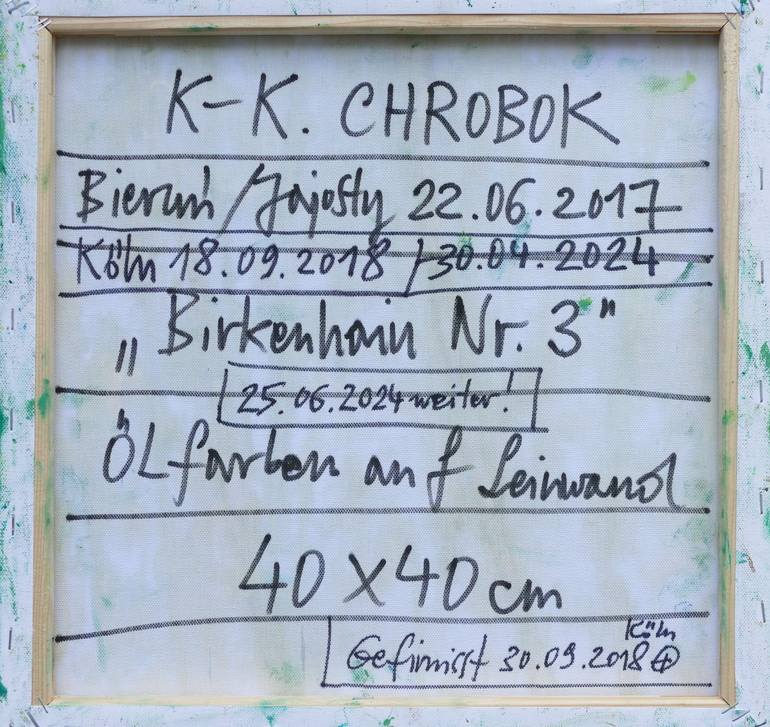 K-K. CHROBOK
Bieruń/Jajosty 22.06.2017
Köln 18.09.2018 / 30.04.2024
„Birkenhain Nr. 3"
25.06.2024 weiter!
Ölfarben auf Leinwand
40 x 40 cm
Köln
Gefirnisst 30.09.2018